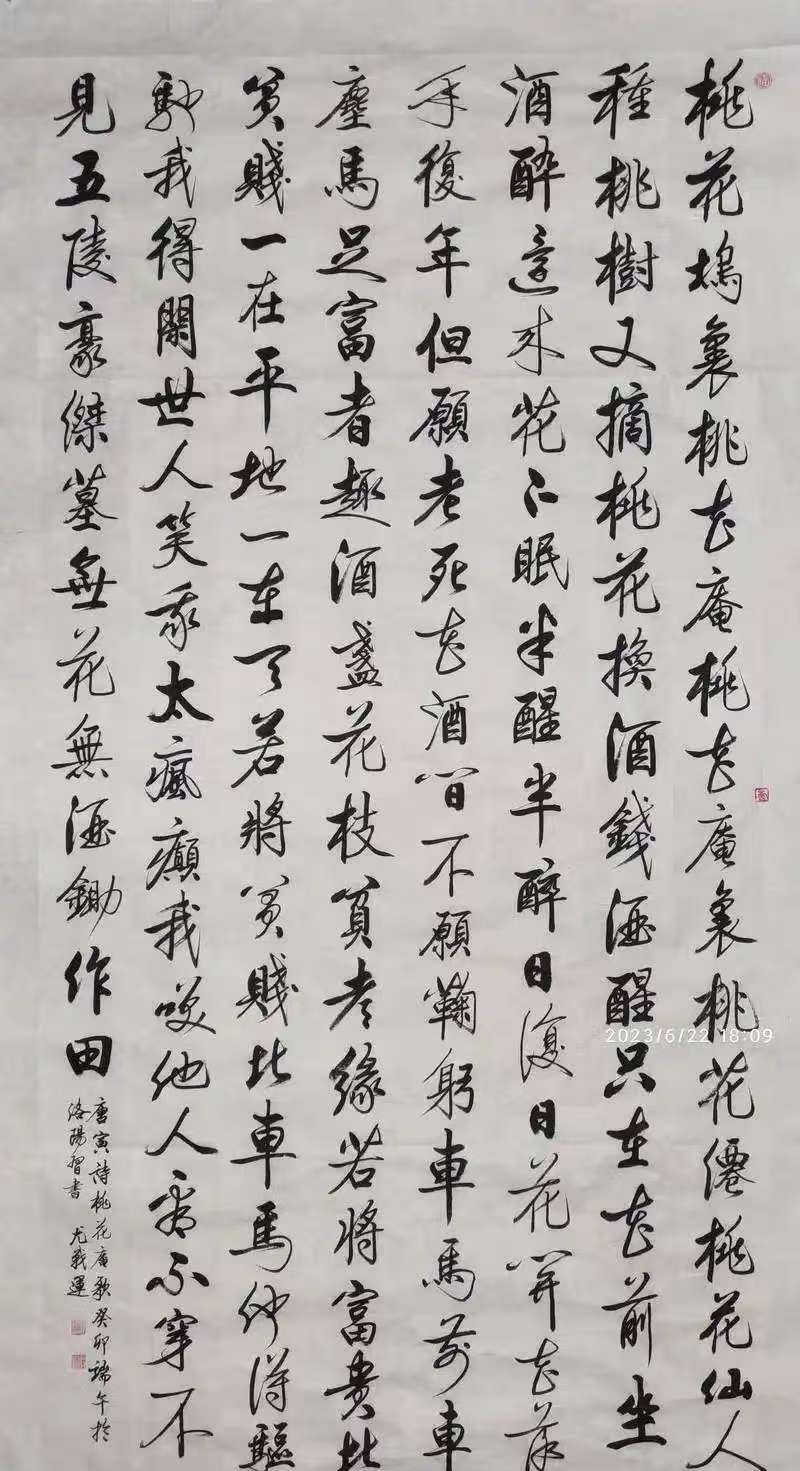 桃花塢裏桃花庵桃花庵裏桃花僊桃花仙人
種桃樹又摘桃花換酒錢酒醒只在花前坐
酒醉還来花下眠半醒半醉日復日花開花落
年復年但願老死花酒間不願鞠躬車馬前車
塵馬足富者趣酒盞花枝貧者緣若將富貴比
貧賤一在平地一在天若將貧賤比車馬他得驅
馳我得閑世人笑我太瘋癲我笑他人看不穿不
見五陵豪傑墓無花無酒鋤作田
唐寅詩桃花庵歌癸卯端午於
洛陽習書 尤戰運
2023/6/22 18:09